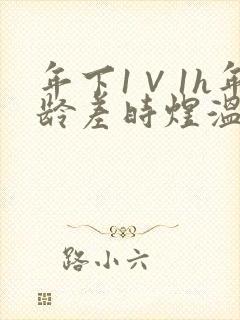 年下1V1h年
龄差时煌温
路小六